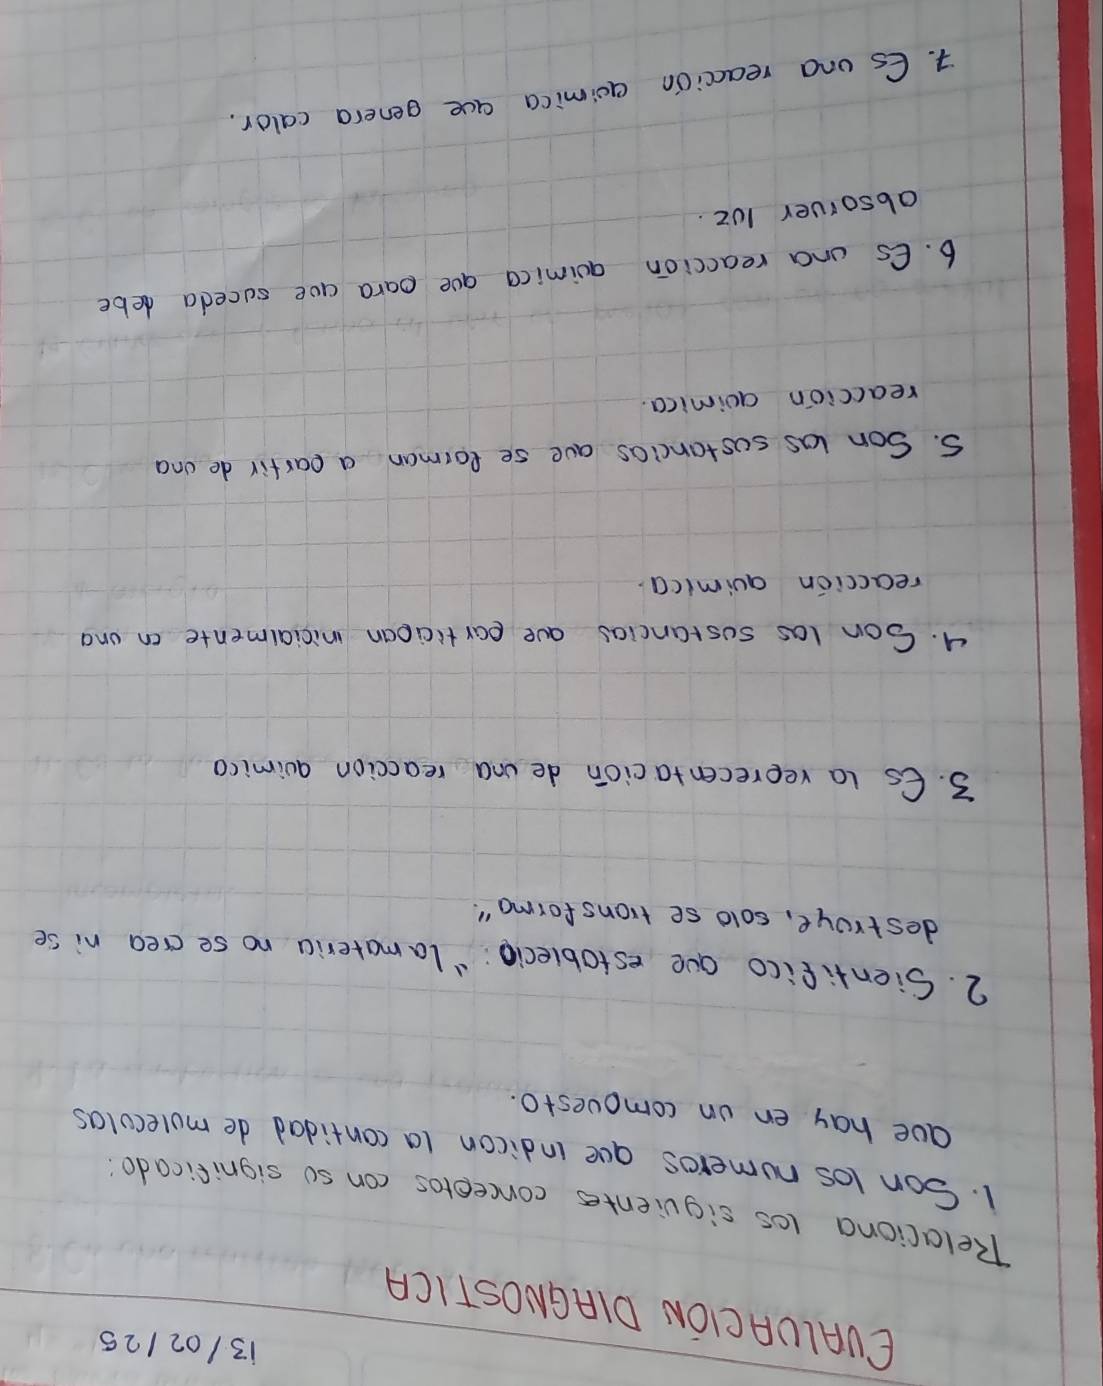 13/02/25
EVALUACIÓN DIAGNOSTICA
Relaciona los siguientes conceptos con su significado:
1. Son los numeros que indican la cantidad de moleculas
que hay en un compuesto.
2. Sientifico que establecio: "La materia no se crea ni se
destruye, solo se transforma".
3. Es la reprecentación de una reacción quimica
4. Son las sustancias que participan inicialmente en una
reacción quimica.
5. Son las sustancias que se forman a partir de una
reacción quimica.
6. Es una reacción quimica que para que suceda debe
absorver luz.
7. Es una reacción quimica que genera calor.